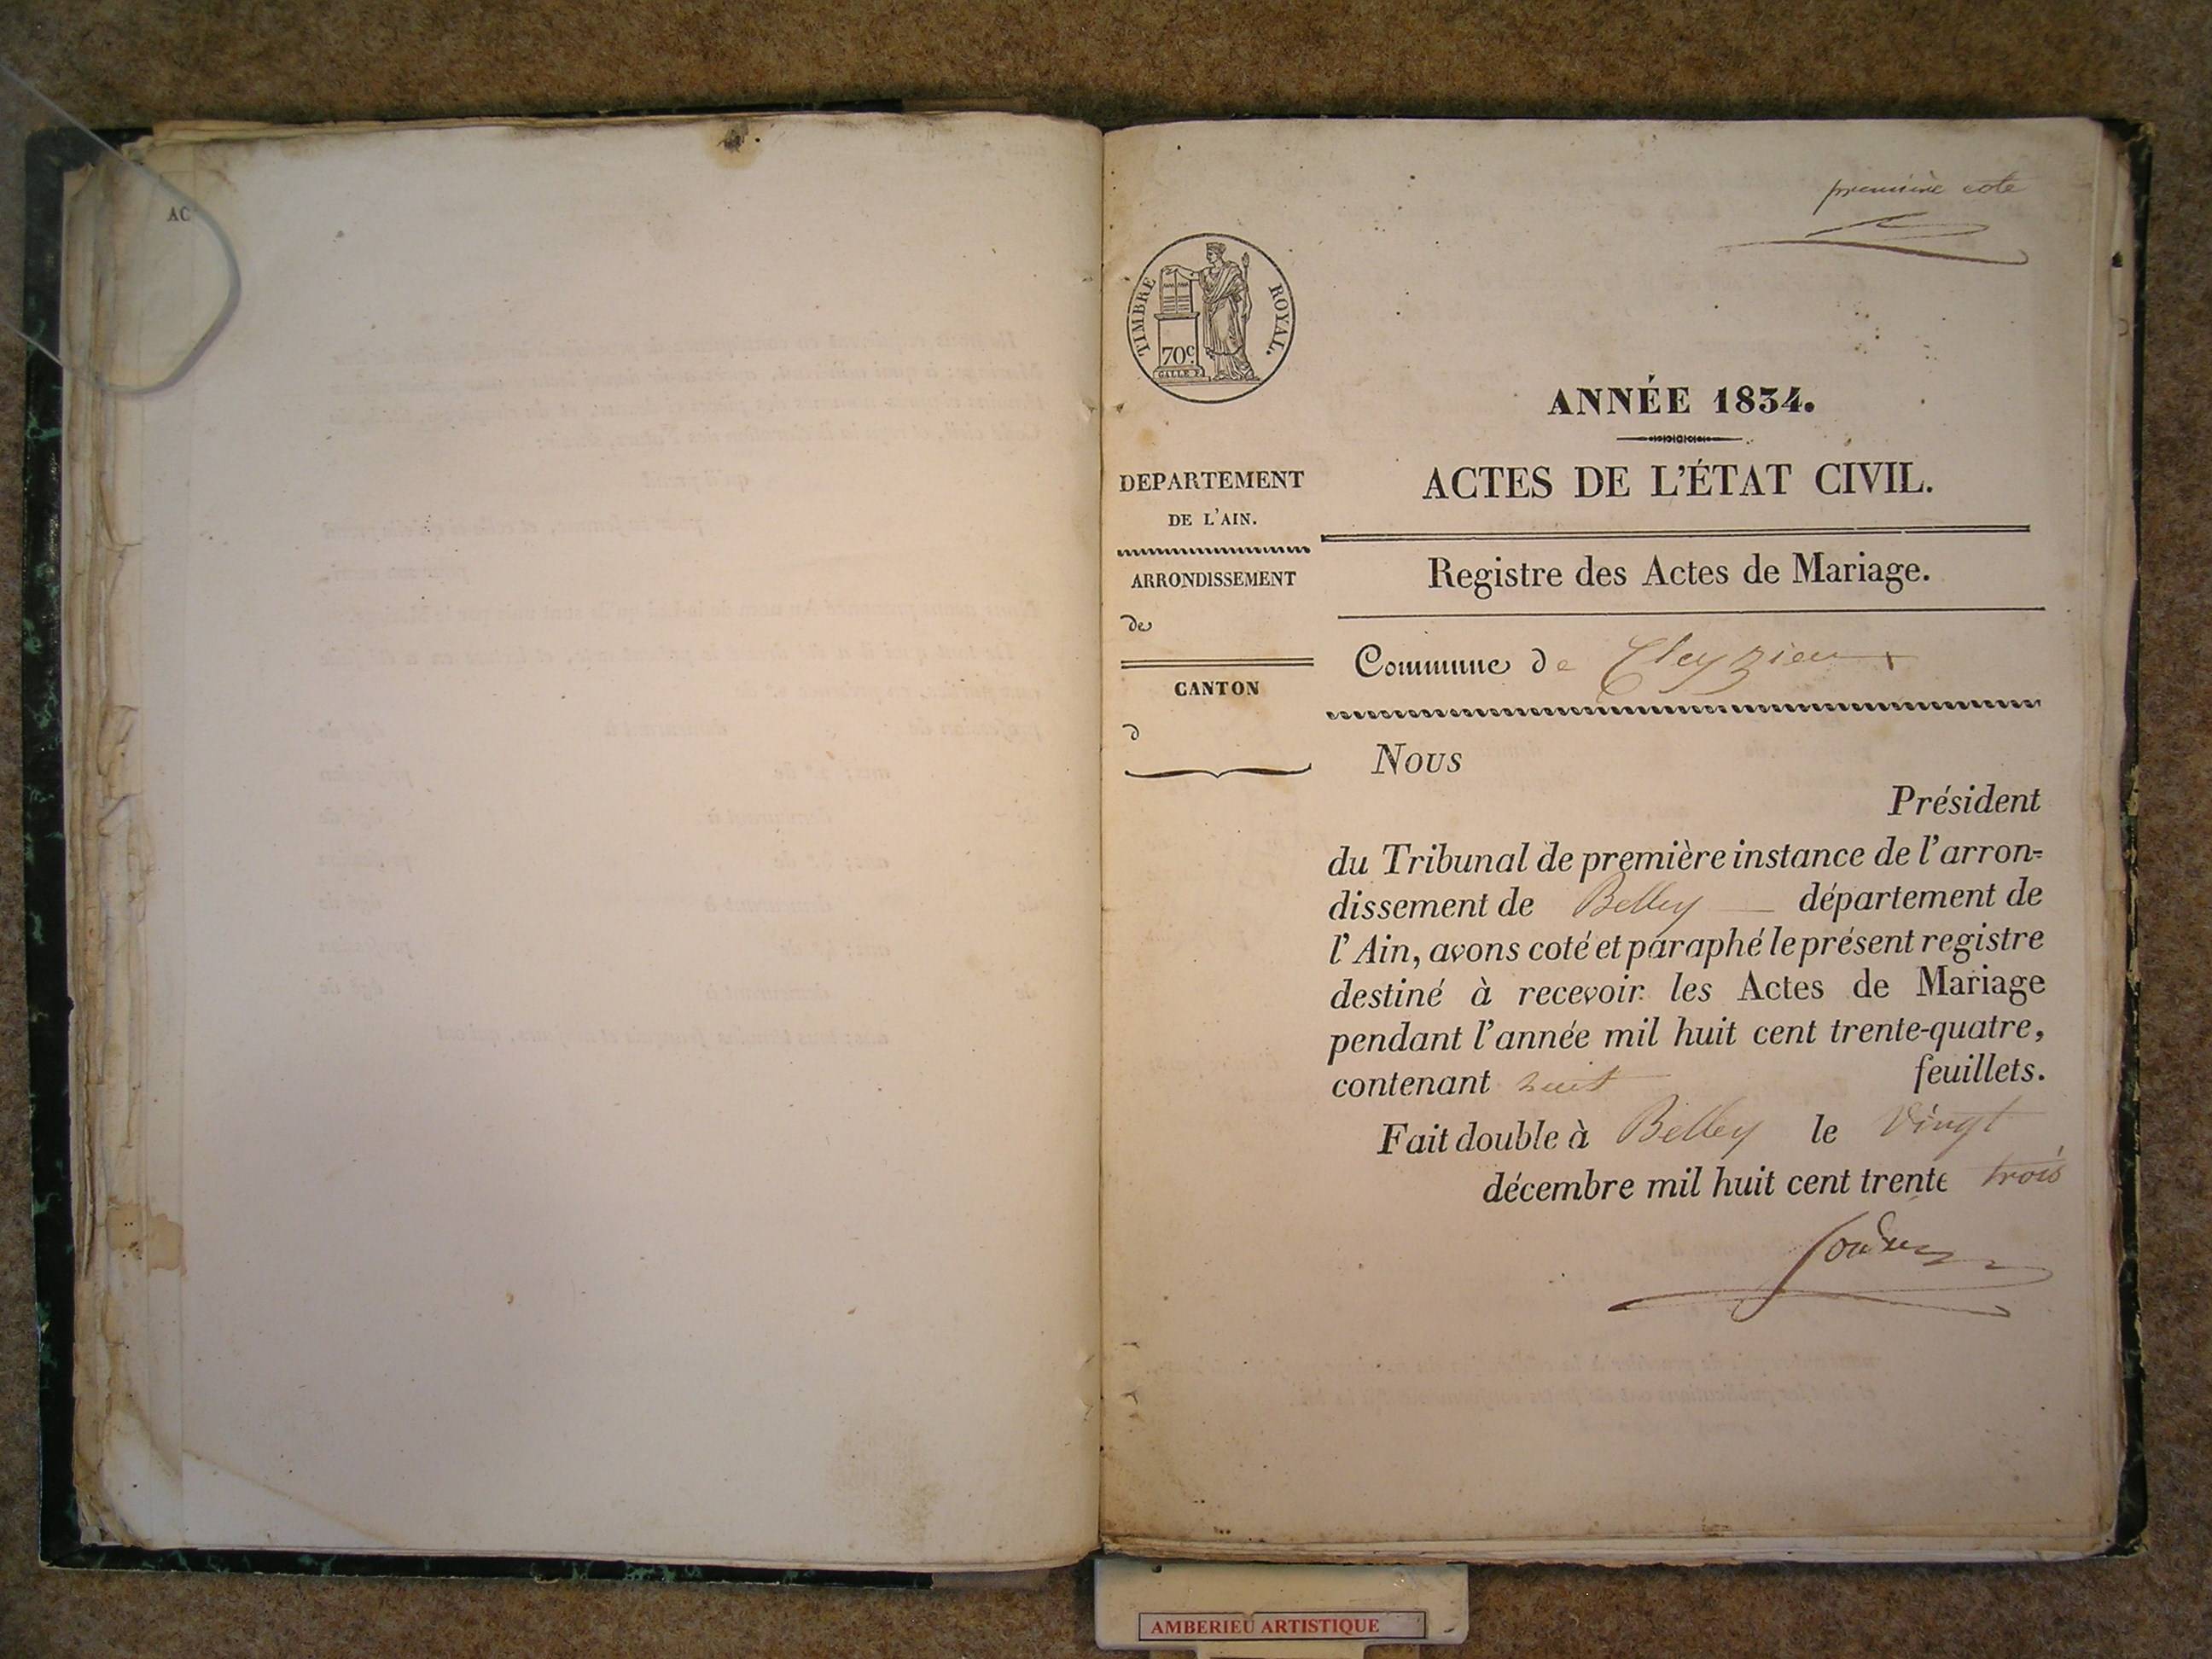 AC
première cote
TIMBRE ROYAL.
70c.
GALLE F.
ANNÉE 1834.
DEPARTEMENT
DE L'AIN.
ARRONDISSEMENT
de
CANTON
d
ACTES DE L'ÉTAT CIVIL.
Registre des Actes de Mariage.
Commune de Cleyzieu
Nous
Président
du Tribunal de première instance de l'arron=
dissement de Belley département de
l'Ain, avons coté et paraphé le présent registre
destiné à recevoir les Actes de Mariage
pendant l'année mil huit cent trente-quatre,
contenant huit feuillets.
Fait double à Belley le Vingt
décembre mil huit cent trente trois
AMBERIEU ARTISTIQUE